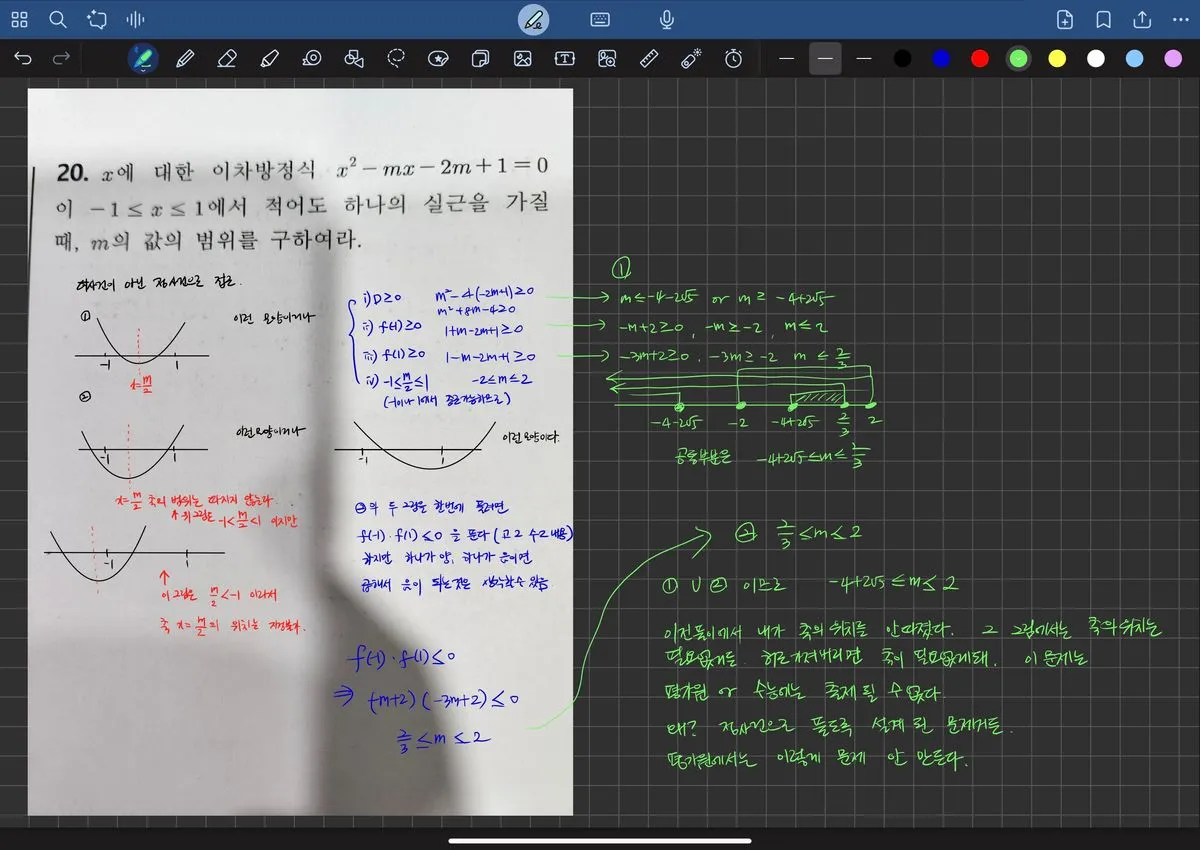 20. x에 대한 이차방정식 x² − mx − 2m + 1 = 0
이 −1 ≤ x ≤ 1에서 적어도 하나의 실근을 가질
때, m의 값의 범위를 구하여라.
여사건이 아닌 정사건으로 접근.
① 이런 모양이거나
-1 1
x=m/2
② 이런모양이거나
-1 1
x=m/2 축의 범위는 따지지 않는다.
위 그림은 -1<m/2<1 이지만
-1 1
↑
이 그림은 m/2<-1 이라서
즉, x=m/2의 위치는
i) D≥0 m²-4(-2m+1)≥0
m²+8m-4≥0
ii) f(-1)≥0 1+m-2m+1≥0
iii) f(1)≥0 1-m-2m+1≥0
iv) -1≤m/2≤1 -2≤m≤2
(-1이나 1에서 중근가능하므로)
이런 모양이다.
-1 1
②의 두 그림은 한번에 풀려면
f(-1)·f(1)≤0 을 쓴다 (고2 수2 내용)
하지만 하나가 양, 하나가 음이면
곱해서 음이 되는것은 생각할수 있음
f(-1)·f(1)≤0
⇒ (-m+2)(-3m+2)≤0
2/3≤m≤2
①
→ m≤-4-2√5 or m≥-4+2√5
→ -m+2≥0, -m≥-2, m≤2
→ -3m+2≥0. -3m≥-2 m≤2/3
-4-2√5 -2 -4+2√5 2/3 2
공통부분은 -4+2√5≤m≤2/3
② 2/3≤m≤2
① U ② 이므로 -4+2√5≤m≤2
이전풀이에서 내가 축의 위치를 안따졌다. 그 그림에서는 축의 위치는
필요없거든. 축이 필요없게돼. 이 문제는
평가원 or 수능에는 출제 될 수 없다.
왜? 정사건으로 풀도록 설계 된 문제거든.
평가원에서는 이렇게 문제 안 만든다.